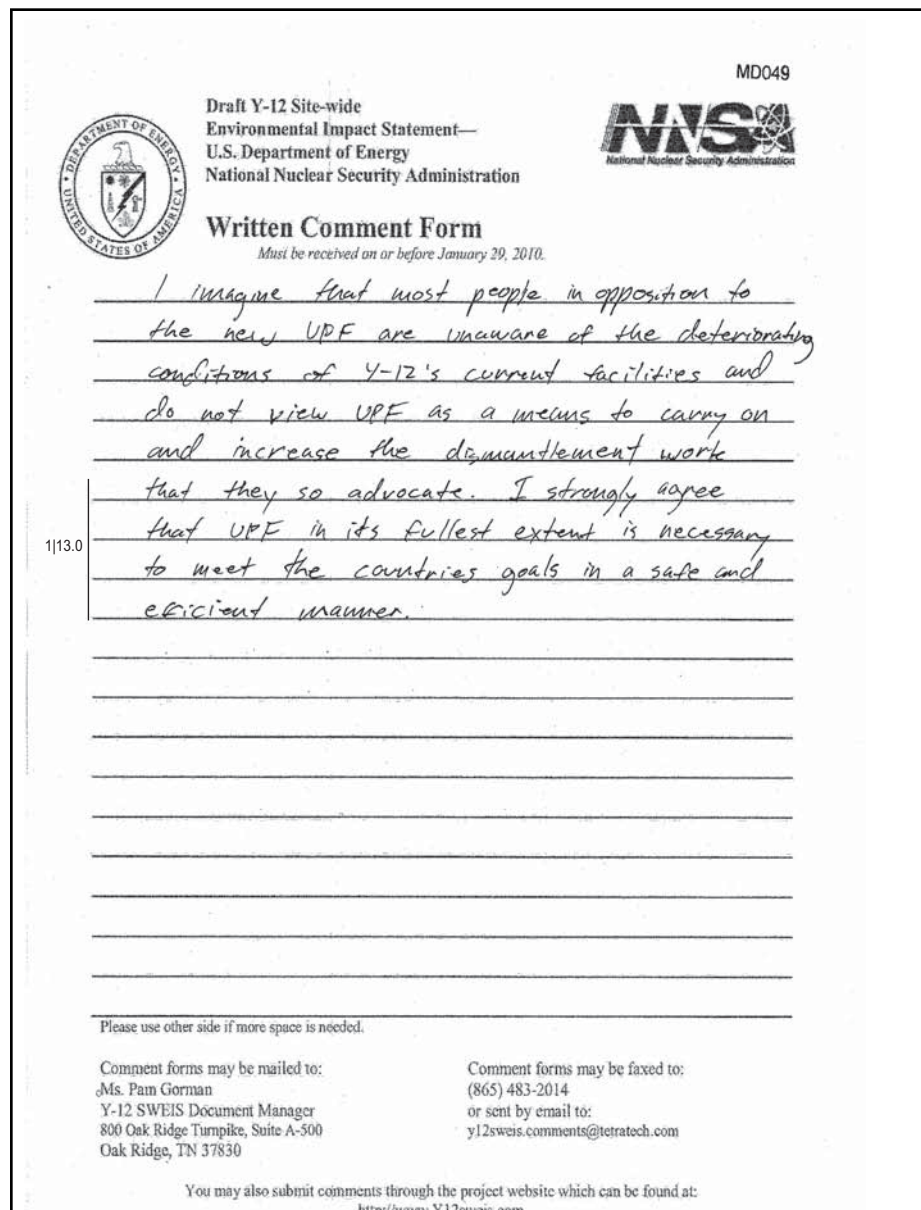 MD049
Draft Y-12 Site-wide
Environmental Impact Statement—
U.S. Department of Energy
National Nuclear Security Administration
DEPARTMENT OF ENERGY
UNITED STATES OF AMERICA
NNSA
National Nuclear Security Administration
Written Comment Form
Must be received on or before January 29, 2010.
I imagine that most people in opposition to
the new UPF are unaware of the deteriorating
conditions of Y-12's current facilities and
do not view UPF as a means to carry on
and increase the dismantlement work
that they so advocate. I strongly agree
that UPF in its fullest extent is necessary
1|13.0
to meet the countries goals in a safe and
efficient manner.
Please use other side if more space is needed.
Comment forms may be mailed to:
Ms. Pam Gorman
Y-12 SWEIS Document Manager
800 Oak Ridge Turnpike, Suite A-500
Oak Ridge, TN 37830
Comment forms may be faxed to:
(865) 483-2014
or sent by email to:
y12sweis.comments@tetratech.com
You may also submit comments through the project website which can be found at: